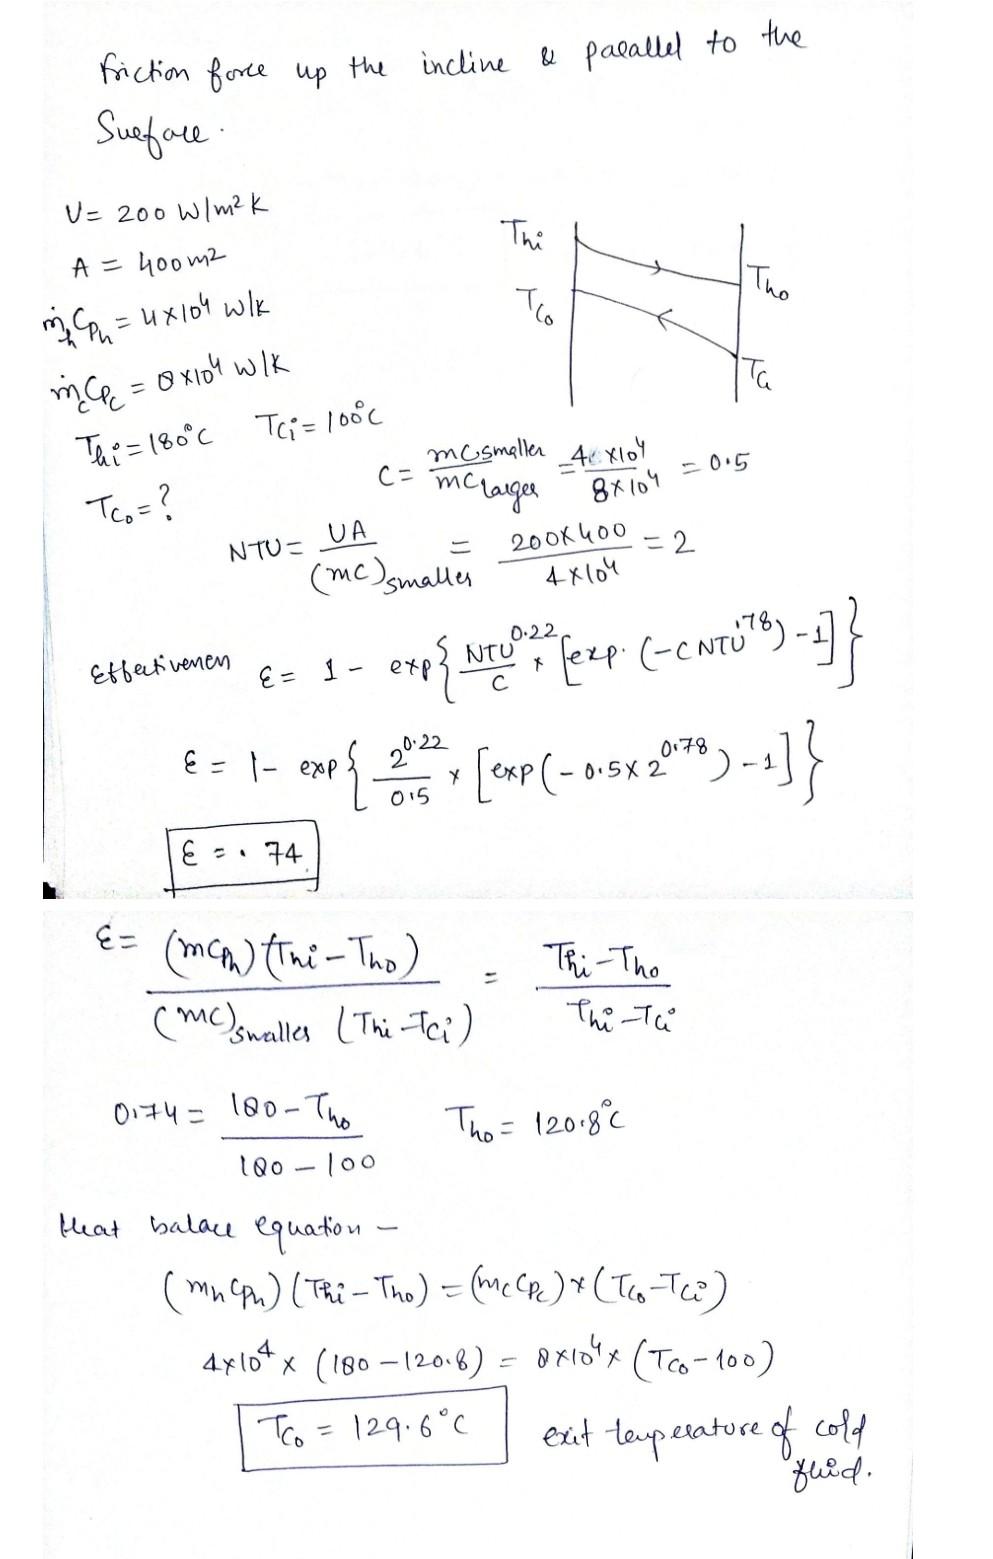 friction force up the incline & parallel to the
Surface.
U = 200 W/m² K
A = 400 m²
ṁₕCpₕ = 4×10⁴ W/K
ṁ_cCp_c = 8×10⁴ W/K
Thi = 180°C Tci = 100°C
Tco = ?
Thi
Tho
Tco
Tci
C = mc smaller / mc larger = 4×10⁴ / 8×10⁴ = 0.5
NTU = UA / (mc)smaller = 200×400 / 4×10⁴ = 2
Effectivenen ε = 1 - exp{ NTU^0.22 / C × [exp. (-C NTU^.78) - 1] }
ε = 1 - exp{ 2^0.22 / 0.5 × [exp(-0.5×2^0.78) - 1] }
ε = .74
ε = (mCph) (Thi - Tho) / (mc)smaller (Thi - Tci) = Thi - Tho / Thi - Tci
0.74 = 180 - Tho / 180 - 100 Tho = 120.8°C
Heat balace equation -
(mh Cph) (Thi - Tho) = (mc Cpc) × (Tco - Tci)
4×10⁴ × (180 - 120.8) = 8×10⁴ × (Tco - 100)
Tco = 129.6°C exit temperature of cold
fluid.